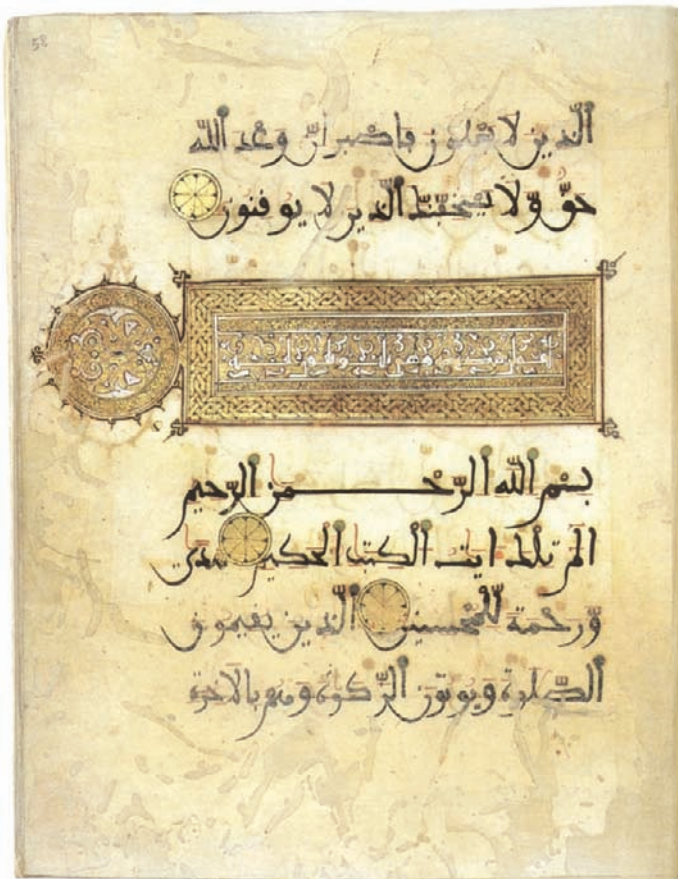 58
الّذين لا يعلمون فاصبر انّ وعد اللّه
حقّ وّلا يستخفّنّك الّذين لا يوقنون
بسم اللّه الرّحمن الرّحيم
الم تلك ايت الكتب الحكيم هدى
وّرحمة لّلمحسنين الّذين يقيمون
الصّلوة ويوتون الزّكوة وهم بالاخرة